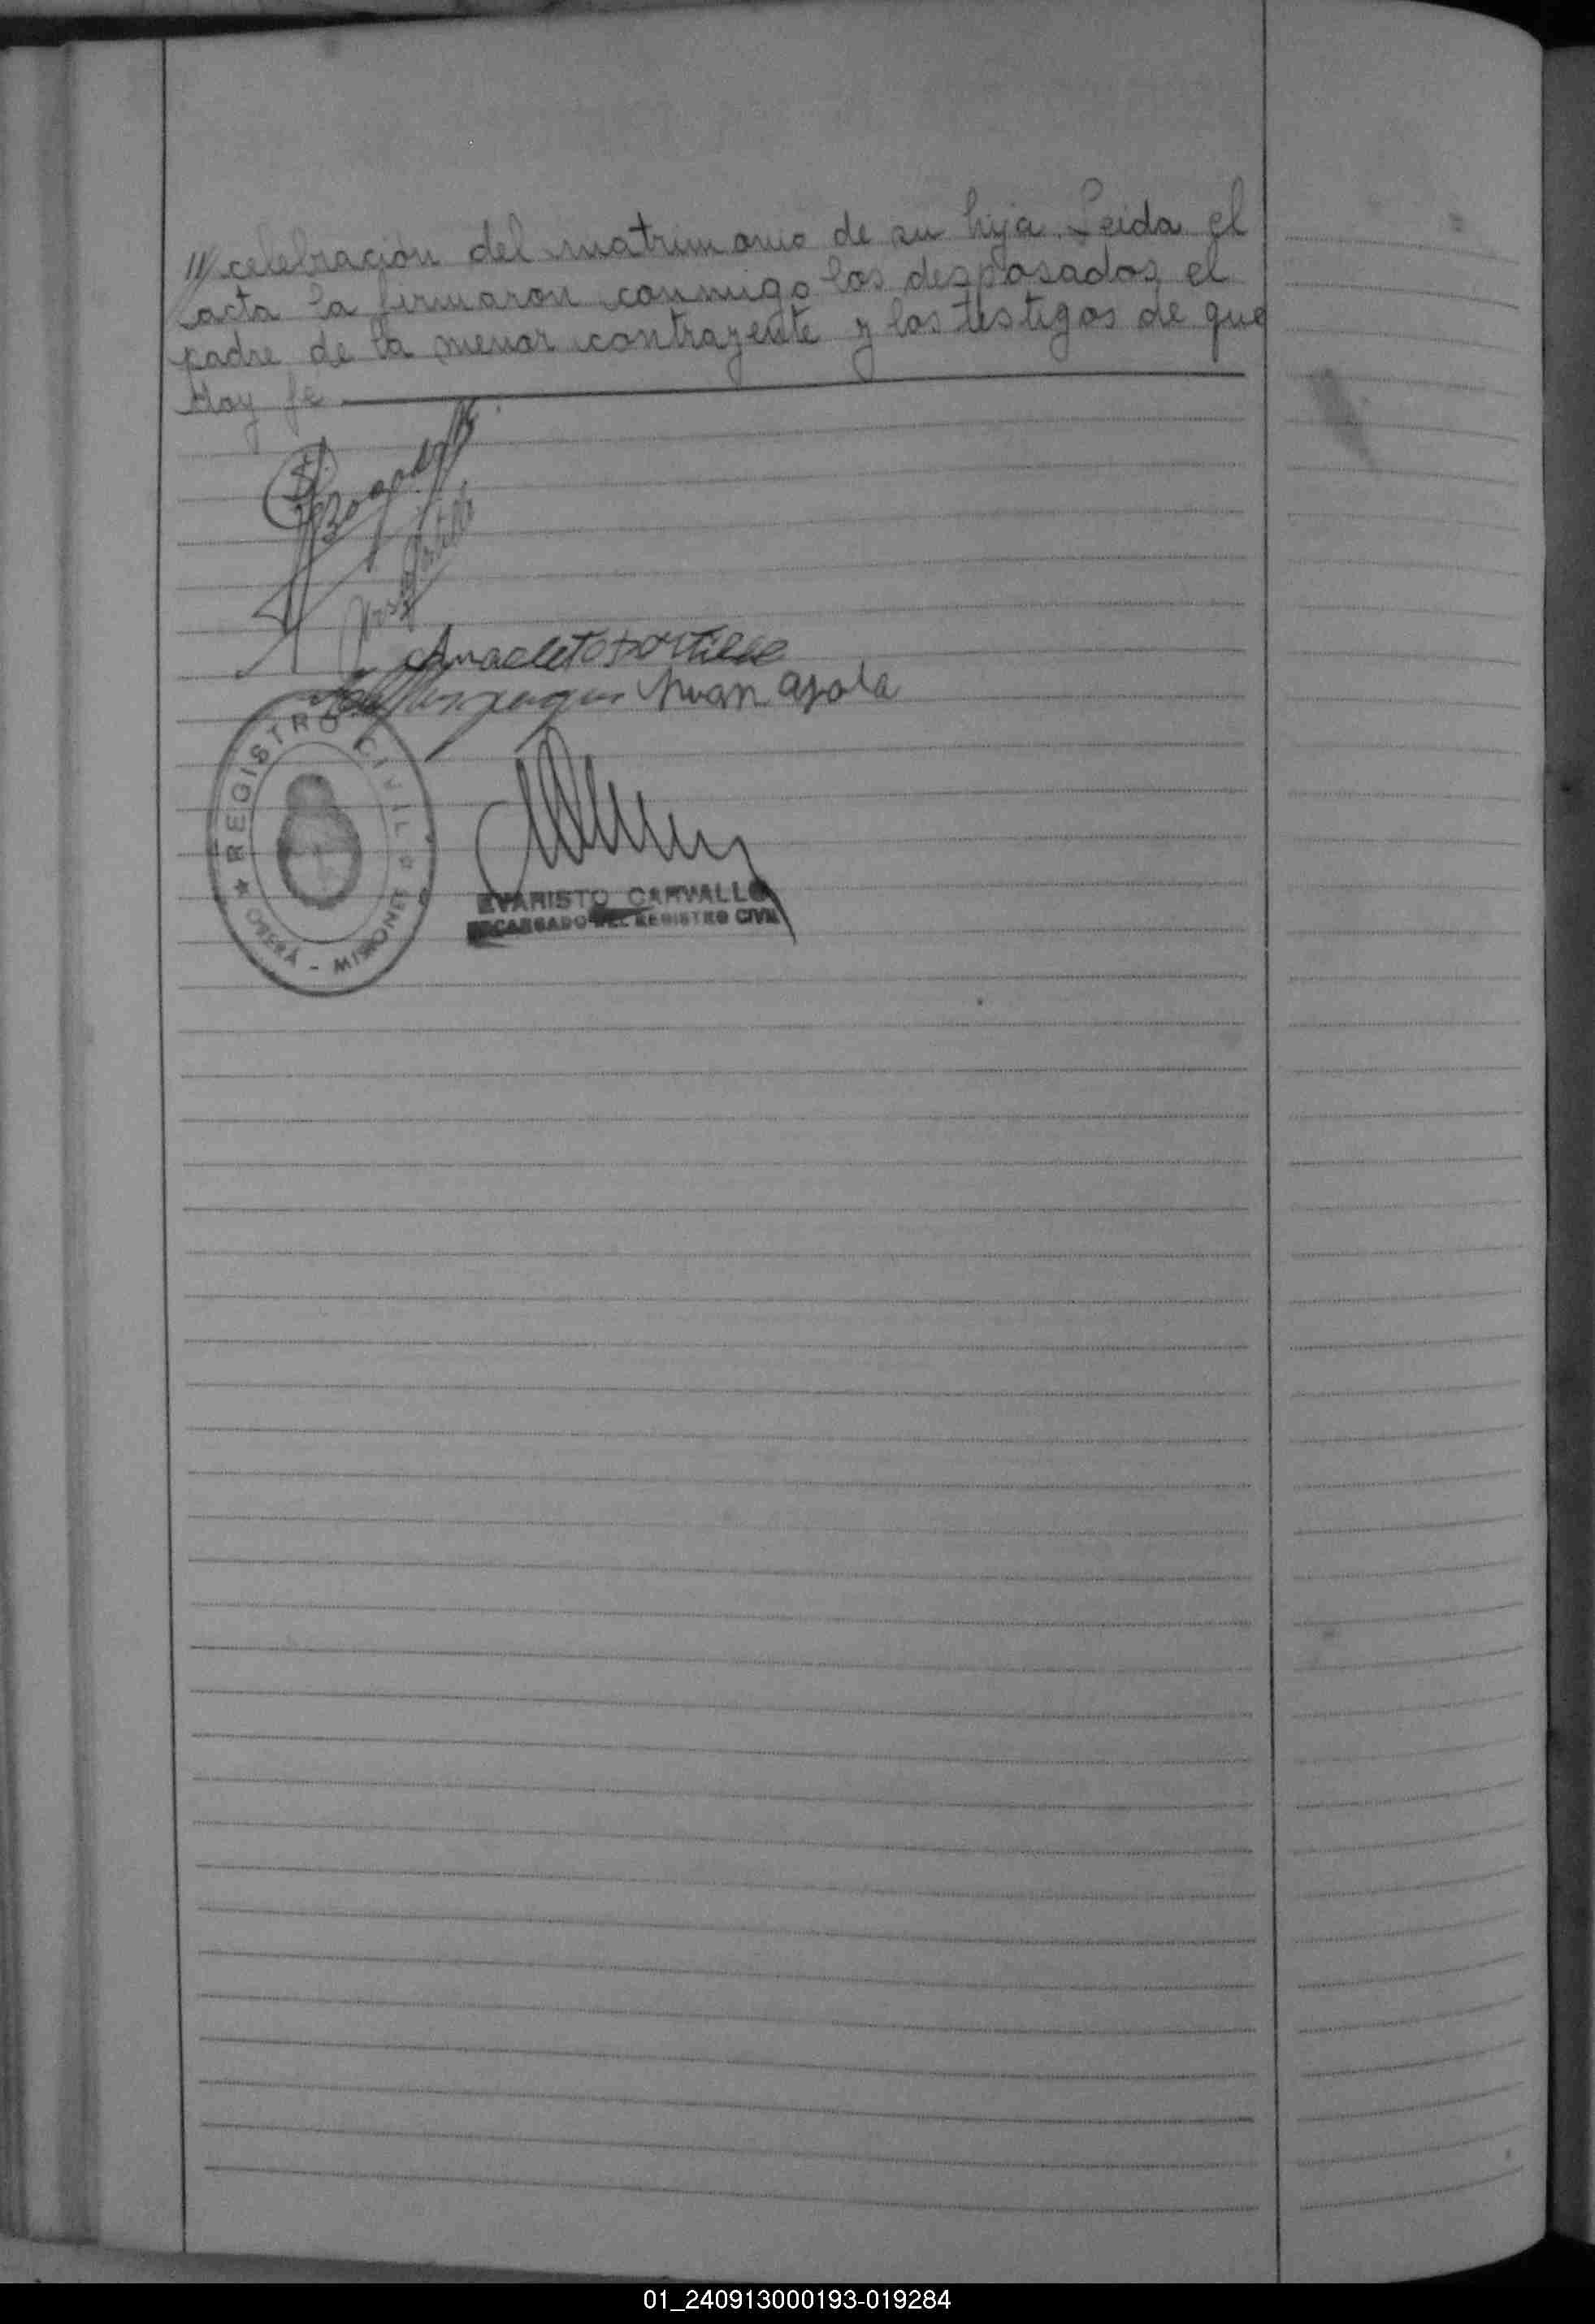 /// celebración del matrimonio de su hija. Leida el
acta la firmaron conmigo los desposados, el
padre de la menor contrayente y los testigos de que
doy fe
Bogado
Portillo
Anacleto Portillo
Juan ayala
REGISTRO CIVIL
OBERÁ - MISIONES
EVARISTO CARVALLO
ENCARGADO DEL REGISTRO CIVIL
01_240913000193-019284